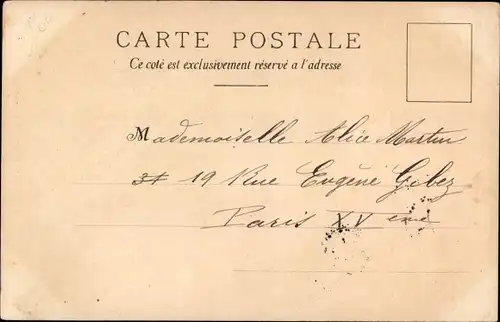 CARTE POSTALE
Ce coté est exclusivement réservé a l'adresse
Mademoiselle Alice Martin
37 19 Rue Eugène Gibez
Paris XV eme